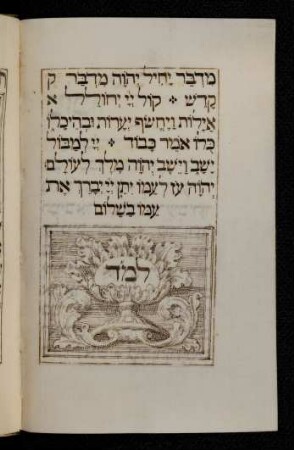 מִדְבָּר יָחִיל יְהֹוָה מִדְבַּר ק
קָדֵשׁ ׃ קוֹל יְיָ יְחוֹלֵל א
אַיָּלוֹת וַיֶּחֱשֹׂף יְעָרוֹת וּבְהֵיכָלוֹ
כֻּלּוֹ אֹמֵר כָּבוֹד ׃ יְיָ לַמַּבּוּל
יָשָׁב וַיֵּשֶׁב יְהֹוָה מֶלֶךְ לְעוֹלָם׃
יְהֹוָה עֹז לְעַמּוֹ יִתֵּן יְיָ יְבָרֵךְ אֶת
עַמּוֹ בַשָּׁלוֹם
למד